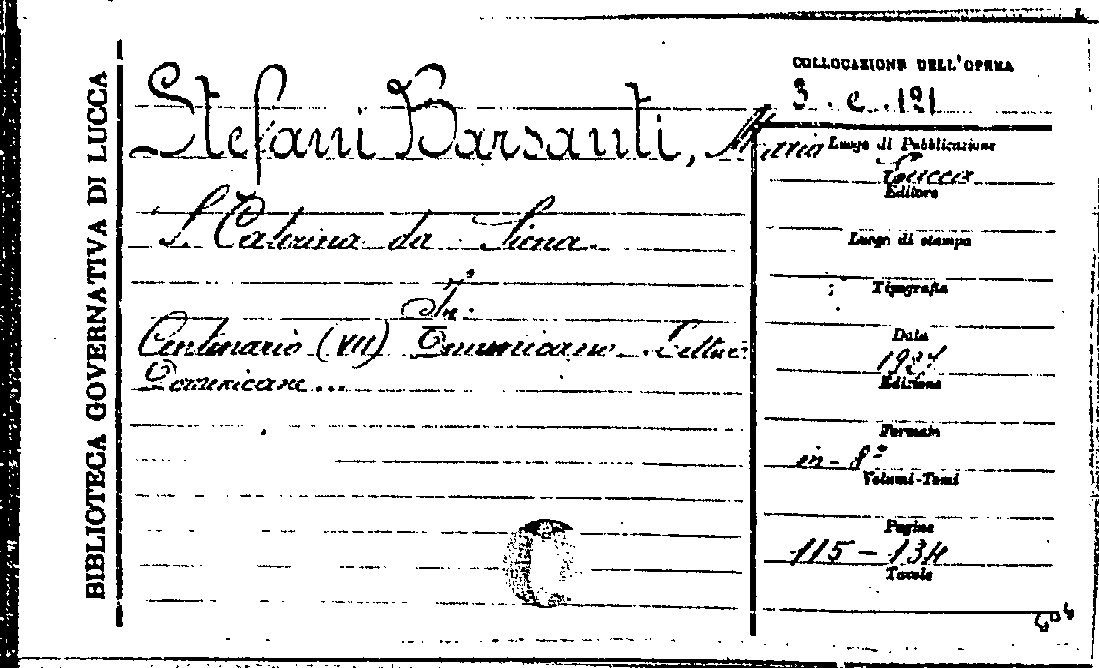 BIBLIOTECA GOVERNATIVA DI LUCCA
Stefani Barsanti, Maria
S. Caterina da Siena.
In:
Centenario (VII) Domenicano. Letture
Domenicane...
COLLOCAZIONE DELL'OPERA
3. c. 121
Luogo di Pubblicazione
Lucca
Editore
Luogo di stampa
Tipografia
Data
1921
Edizione
Formato
in-8°
Volumi-Tomi
Pagine
115-134
Tavole